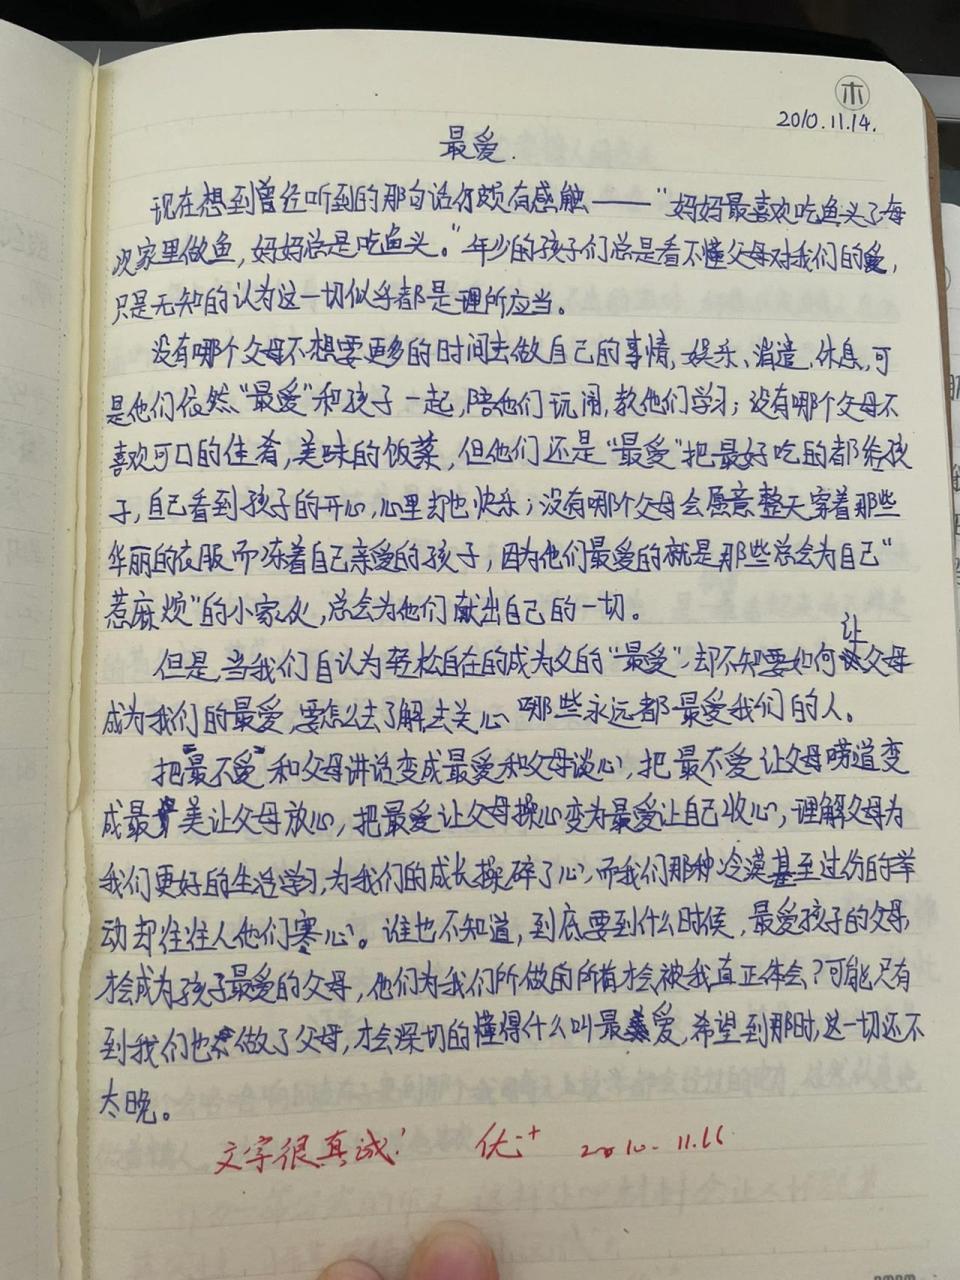 木
2010.11.14.
最爱.
现在想到曾经听到的那句话仍颇有感触——“妈妈最喜欢吃鱼头了每
次家里做鱼，妈妈总是吃鱼头。”年少的孩子们总是看不懂父母对我们的爱，
只是无知的认为这一切似乎都是理所应当。
没有哪个父母不想要更多的时间去做自己的事情，娱乐、消遣、休息，可
是他们依然“最爱”和孩子一起，陪他们玩闹，教他们学习；没有哪个父母不
喜欢可口的佳肴，美味的饭菜，但他们还是“最爱”把最好吃的都给孩
子，自己看到孩子的开心，心里却也快乐；没有哪个父母会愿意整天穿着那些
华丽的衣服而冻着自己亲爱的孩子，因为他们最爱的就是那些总会为自己“
惹麻烦”的小家伙，总会为他们献出自己的一切。
但是，当我们自认为轻松自在的成为父的“最爱”却不知要如何让父母
成为我们的最爱，要怎么去了解，去关心，哪些永远都最爱我们的人。
把“最不爱”和父母讲话变成最爱和父母谈心，把最不爱让父母唠道变
成最美让父母放心，把最爱让父母操心变为最爱让自己收心，理解父母为
我们更好的生活学习，为我们的成长操碎了心，而我们那种冷漠甚至过份的举
动却往往人他们寒心。谁也不知道，到底要到什么时候，最爱孩子的父母，
才会成为孩子最爱的父母，他们为我们所做的所有才会被我真正体会？可能只有
到我们也做了父母，才会深切的懂得什么叫最爱，希望到那时，这一切还不
太晚。
文字很真诚！ 优+ 2010.11.16